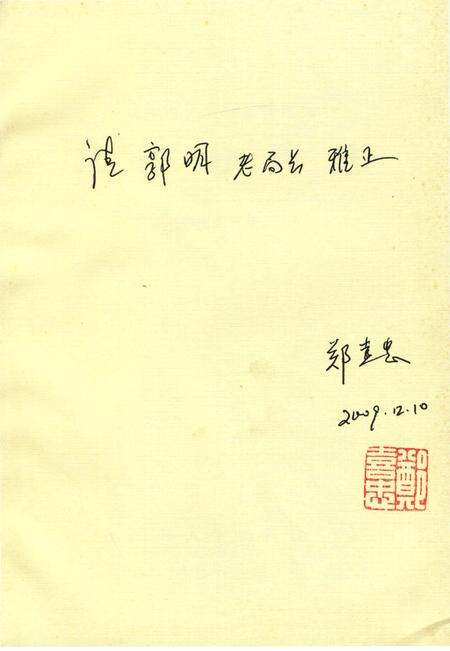 请 郭明 老局长 雅正
郑喜忠
2009.12.10
鄭喜忠